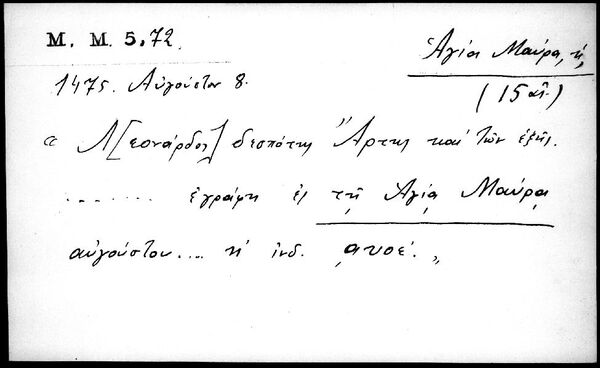 M. M. 5,72.
Ἁγία Μαύρα, ἡ,
1475. Αὐγούστου 8.
(15 αἰ.)
" Λ[εονάρδος] δεσπότης Ἄρτης καὶ τῶν ἑξῆς.
....... ἐγράφη ἐν τῇ Ἁγίᾳ Μαύρᾳ
αὐγούστου.... η' ἰνδ. ͵αυοε'. "